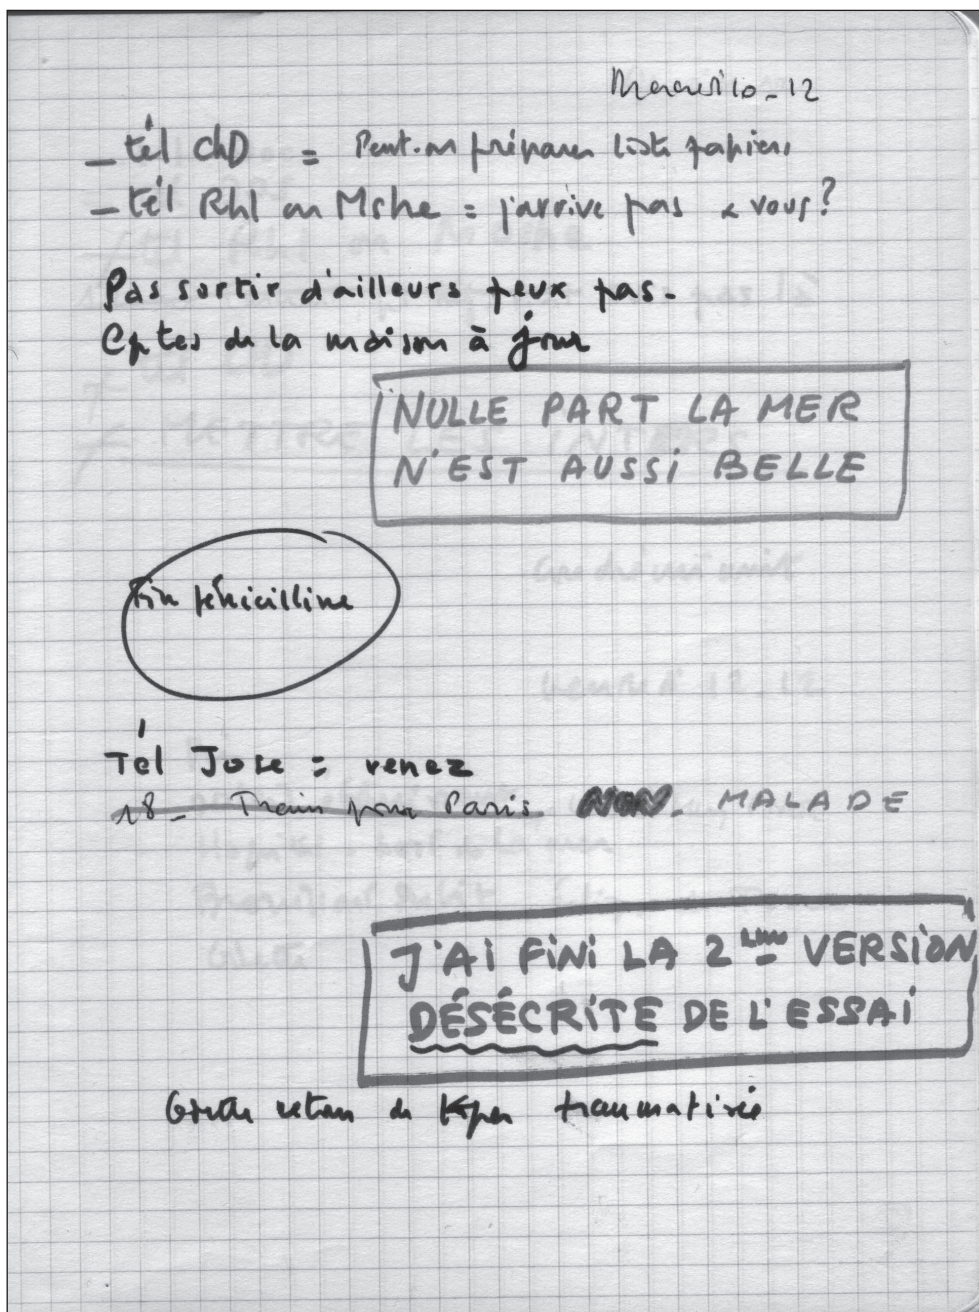 Mercredi 10-12
_ tél ChD = Peut-on préparer liste papiers
_ tél Rhl on Mshe = j'arrive pas & vous?
Pas sortir d'ailleurs peux pas.
Cptes de la maison à jour
NULLE PART LA MER
N'EST AUSSI BELLE
Fin pénicilline
Tél Jose = venez
18_ Train pour Paris NON. MALADE
J'AI FINI LA 2 VERSION
DÉSÉCRITE DE L'ESSAI
retour de traumatisée